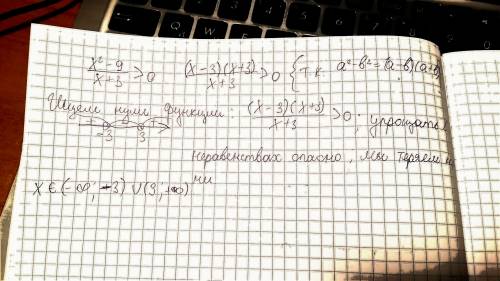 x²-9 / x+3 > 0 (x-3)(x+3) / x+3 > 0 { т.к. a²-b²=(a-b)(a+b)
Ищем нули функции: (x-3)(x+3) / x+3 > 0; упрощать
-3 3
неравенствах опасно, мы теряем
X ∈ (-∞; -3) ∪ (3; +∞) ни